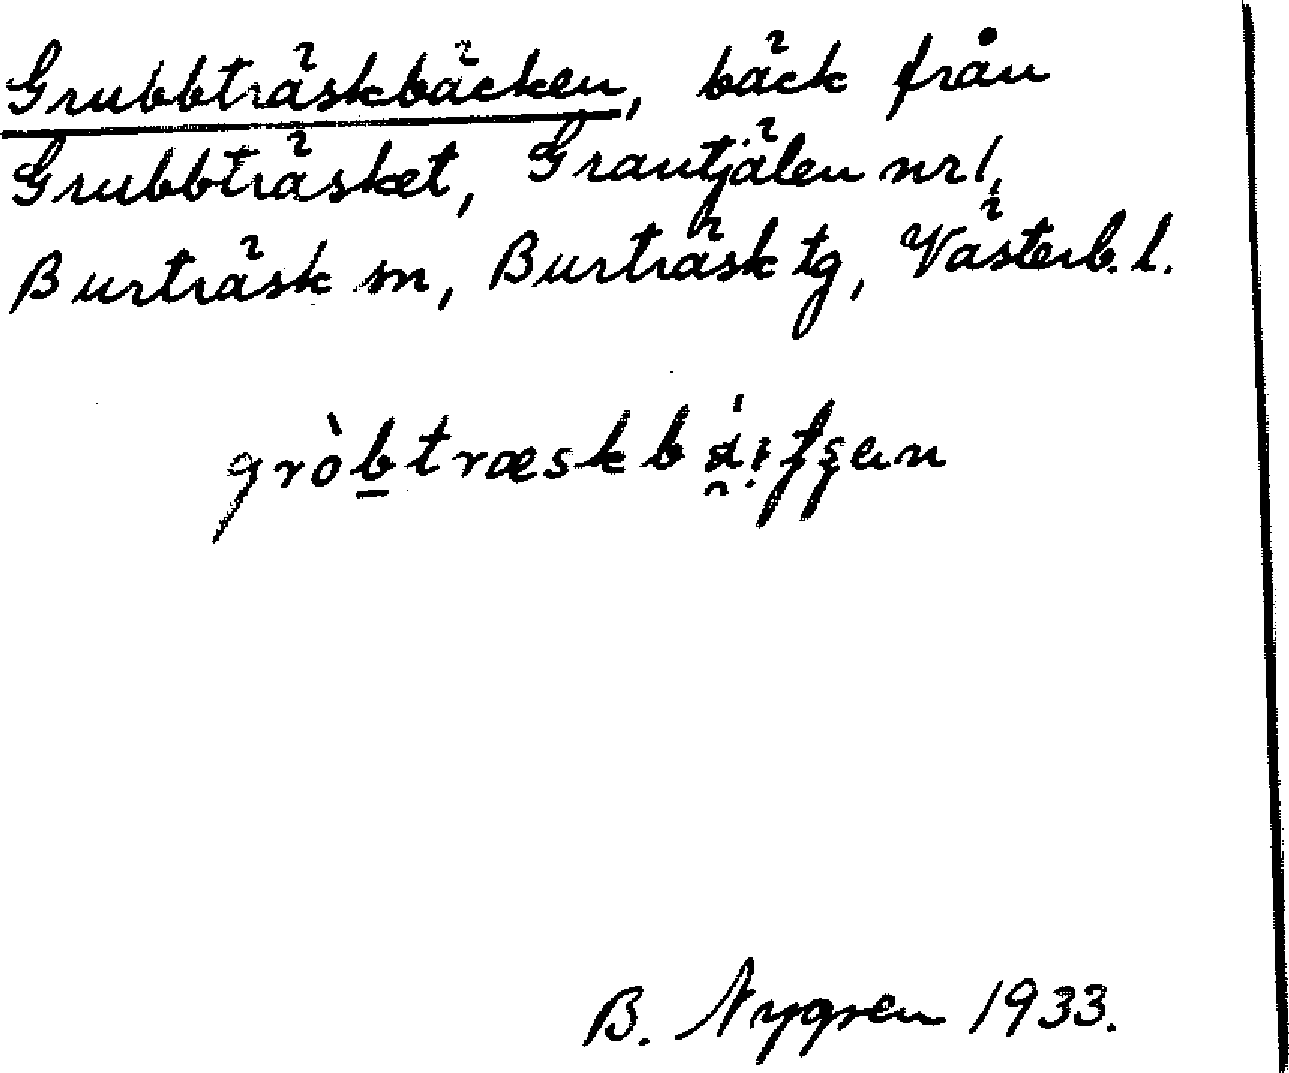 Grubbträskbäcken, bäck från
Grubbträsket, Grantjälen nr 1,
Burträsk sn, Burträsk tg, Västerb. l.
B. Nygren 1933.